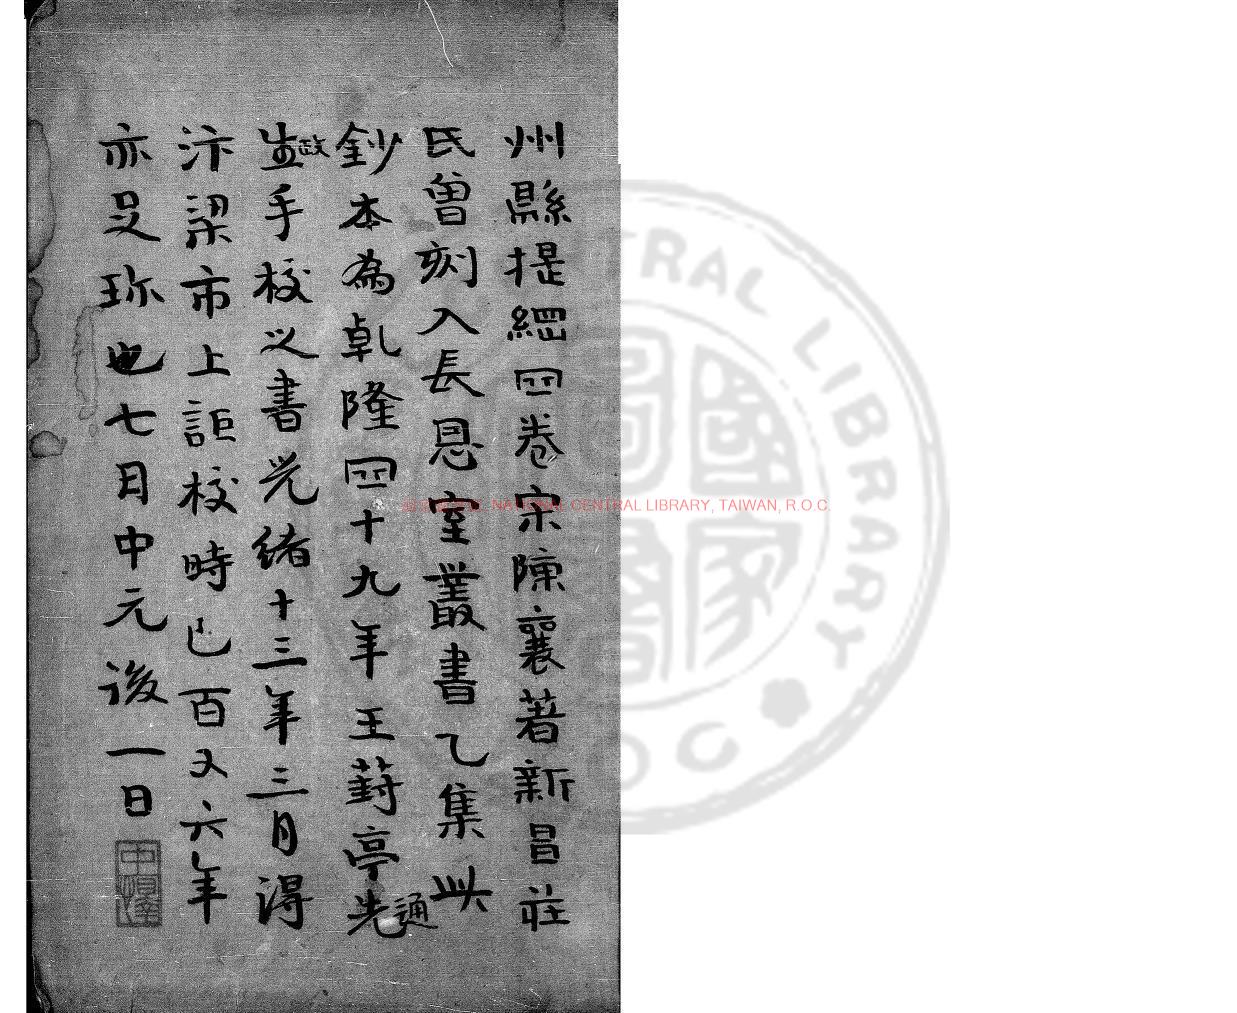 州縣提綱四卷宋陳襄著新昌莊
氏曾刻入長恩室叢書乙集此
鈔本為乾隆四十九年王葑亭先通
生政手校以書光緒十三年三月得
汴梁市上距校時已百又六年
亦足珍也七月中元後一日
NATIONAL CENTRAL LIBRARY, TAIWAN, R.O.C.
TRAL LIBRARY
OC